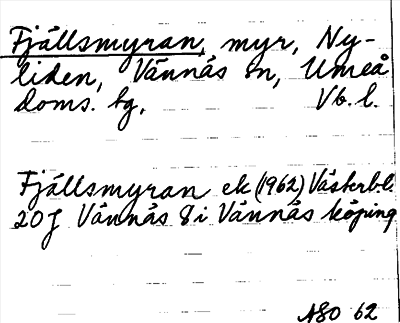 Fjällsmyran, myr, Ny-
liden, Vännäs sn, Umeå
doms. hg, Vb. l.
Fjällsmyran ek (1962) Västerb.l.
20J Vännäs 8i Vännäs köping
ASO 62